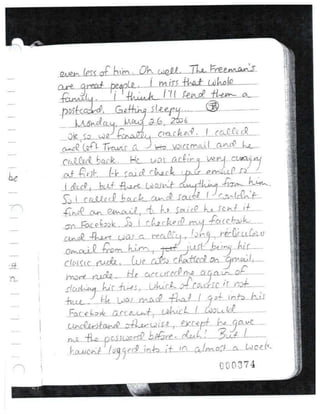 even less of him. Oh well. The Freeman's
are great people. I miss that whole
family. I think I'll send them a
postcard. Getting sleepy.
Monday, May 26,
OK so we finally cracked. I called
and left Travis a voicemail and he
called back. He was acting very
at first. He said check your email so
I did, but there wasn't anything from him.
So I called back and said I couldn't
find an email, he said he sent it
on Facebook. So I checked my facebook
and there was a really, long, ridiculous
email from him, just being his
classic rude. We also chatted on gmail,
more rude. He accused me again of
slashing his tires, which of course is not
true. He was mad that I got into his
Facebook account, which I would
understand otherwise, except he gave
me the password before. duh! But I
havent logged into it in almost a week
000374